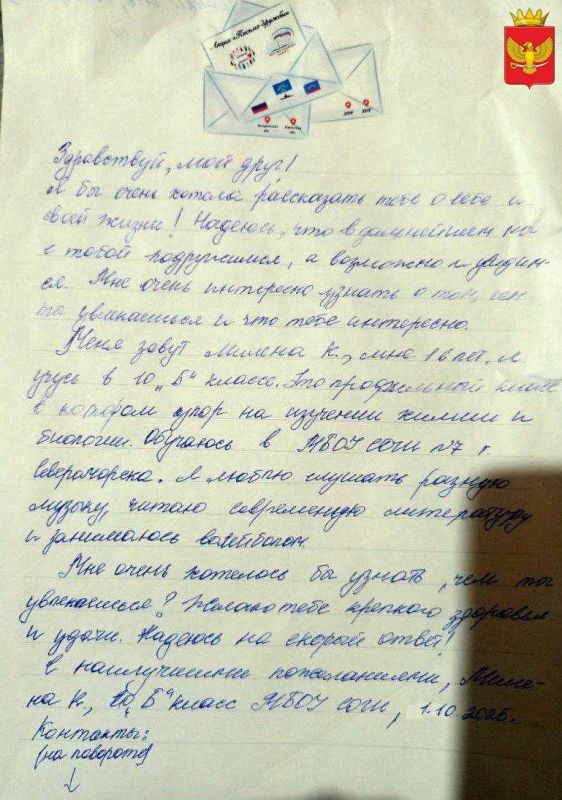 Акция «Письмо дружбы»
ДНР ЛНР
Здравствуй, мой друг!
Я бы очень хотела рассказать тебе о себе и
своей жизни! Надеюсь, что в дальнейшем мы
с тобой подружимся, а возможно и увидим-
ся. Мне очень интересно узнать о том, чем
ты увлекаешься и что тебе интересно.
Меня зовут Милена К., мне 16 лет, я
учусь в 10 „Б" классе. Это профильный класс
в котором упор на изучении химии и
биологии. Обучаюсь в МБОУ СОШ №7 г.
Североморска. Я люблю слушать разную
музыку, читаю современную литературу
и занимаюсь волейболом.
Мне очень хотелось бы узнать, чем ты
увлекаешься? Желаю тебе крепкого здоровья
и удачи. Надеюсь на скорый ответ!
С наилучшими пожеланиями, Миле-
на К., 10 „Б" класс МБОУ СОШ, 1.10.2025.
Контакты:
(на повороте)